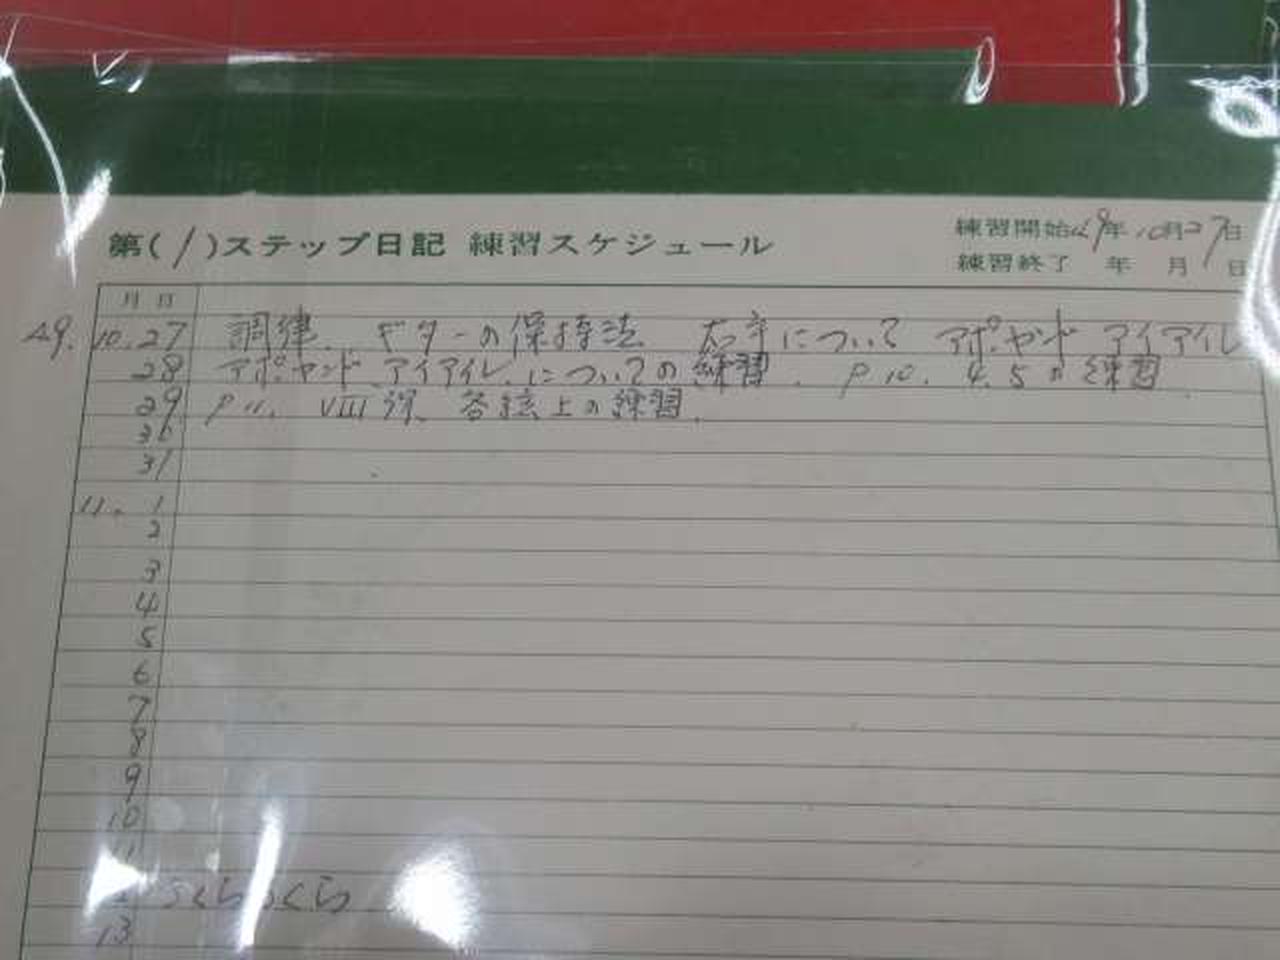 第(1)ステップ日記 練習スケジュール
練習開始49年10月27日
練習終了 年 月 日
月日
49. 10.27 調律. ギターの保持法 右手について アポヤンド アイアイレ
28 アポヤンド アイアイレ.についての練習. P10. 4.5の練習
29 P11. VIII課. 各弦上の練習.
30
31
11. 1
2
3
4
5
6
7
8
9
10
11
さくらさくら
13